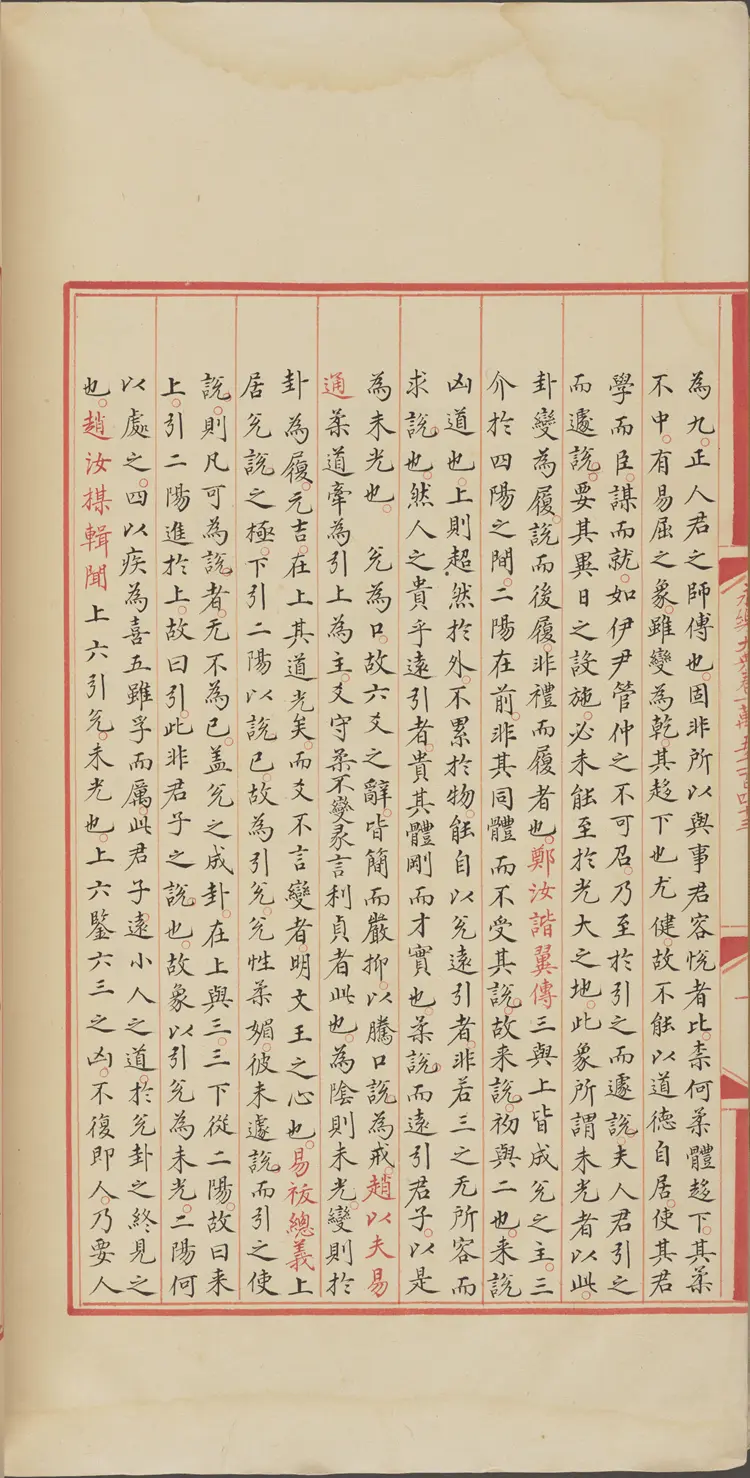 為九。正人君之師傅也。固非所以與事君容悅者比。柰何柔體趍下。其柔
不中。有易屈之象。雖變為乾。其趍下也尤健。故不能以道德自居。使其君
學而臣。謀而就。如伊尹管仲之不可召。乃至於引之而遽說。夫人君引之
而遽說。要其異日之設施。必未能至於光大之地。此象所謂未光者以此。
卦變為履。說而後履。非禮而履者也。鄭汝諧翼傳三與上皆成兊之主。三
介於四陽之間。二陽在前。非其同體而不受其說。故来說。初與二也。来說
凶道也。上則超然於外。不累於物。能自以兊遠引者。非若三之无所容而
求說也。然人之貴乎遠引者。貴其體剛而才實也。柔說而遠引君子。以是
為未光也。 兊為口。故六爻之辭。皆簡而嚴抑。以騰口說為戒。趙以夫易
通柔道牽為引上為主。爻守柔不變彖言利貞者此也。為陰則未光。變則於
卦為履。元吉。在上其道光矣。而爻不言變者。明文王之心也。易祓總義上
居兊說之極。下引二陽以說已。故為引兊。兊性柔媚。彼未遽說而引之使
說。則凡可為說者。无不為已。盖兊之成卦。在上與三。三下從二陽。故曰来
上。引二陽進於上。故曰引。此非君子之說也。故象以引兊為未光。二陽何
以處之。四以疾為喜五雖孚而厲。此君子遠小人之道。於兊卦之終見之
也。趙汝楳輯聞上六引兊。未光也。上六鍳六三之凶。不復即人。乃要人
永樂大典卷一萬五千一百四十三